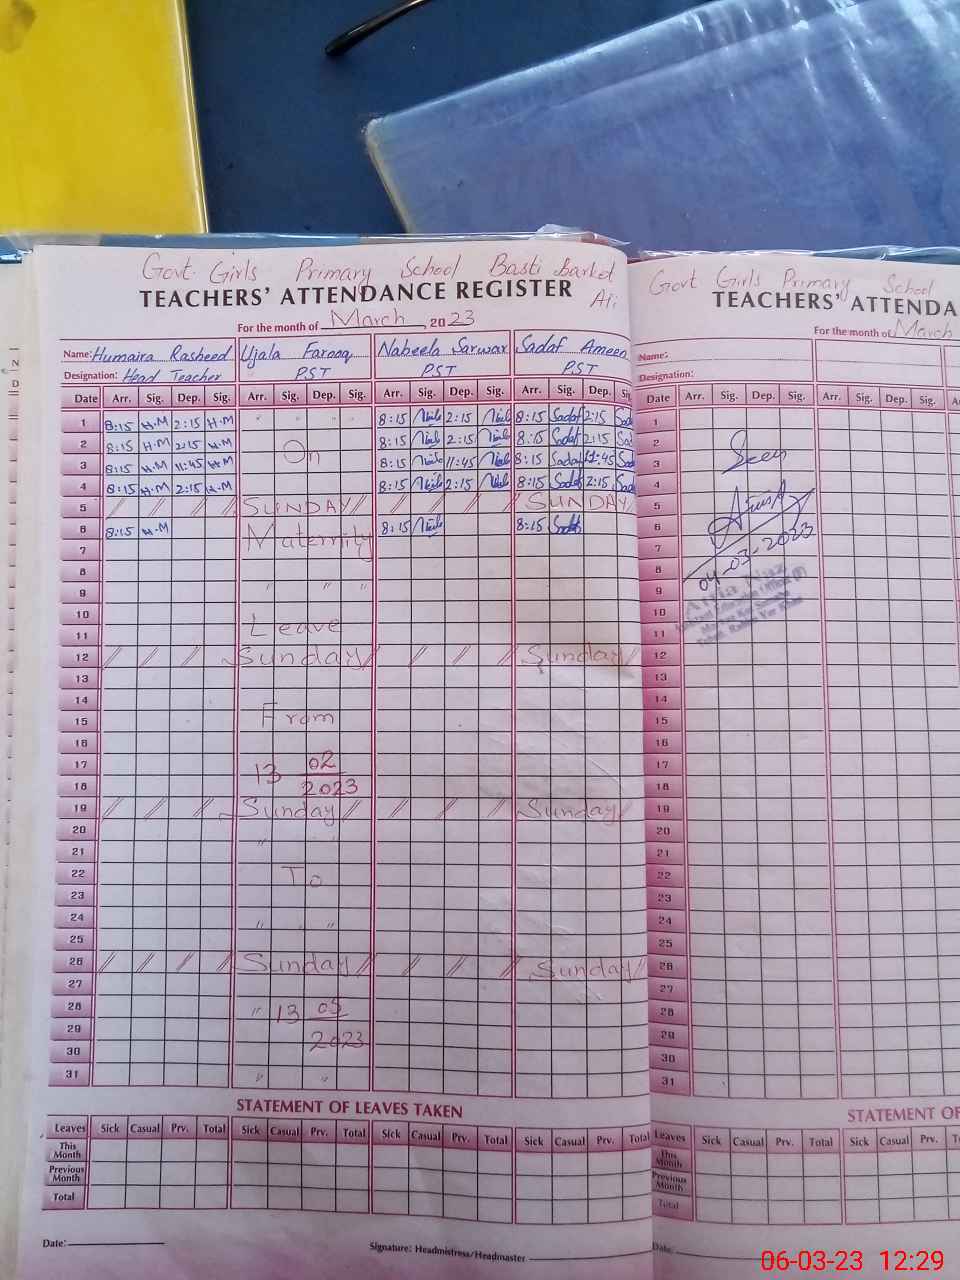 Govt. Girls Primary School Basti Barkat Ali
TEACHERS' ATTENDANCE REGISTER
For the month of March, 2023
Name: Humaira Rasheed Ujala Farooq Nabeela Sarwar Sadaf Ameen
Designation: Head Teacher PST PST PST
Date Arr. Sig. Dep. Sig. Arr. Sig. Dep. Sig. Arr. Sig. Dep. Sig. Arr. Sig. Dep. Sig.
1 8:15 H.M 2:15 H.M 8:15 2:15 8:15 Sadaf 2:15
2 8:15 H.M 2:15 H.M 8:15 2:15 8:15 Sadaf 2:15
3 8:15 H.M 11:45 H.M On 8:15 11:45 8:15 Sadaf 11:45
4 8:15 H.M 2:15 H.M 8:15 2:15 8:15 Sadaf 2:15
5 SUNDAY SUNDAY
6 8:15 H.M Maternity 8:15 8:15 Sadaf
7
8
9 " " "
10 Leave
11
12 Sunday Sunday
13
14
15 From
16
17 13 02
18 2023
19 Sunday Sunday
20
21
22 To
23
24 " " "
25
26 Sunday Sunday
27
28 " 13 05
29 2023
30
31 " "
STATEMENT OF LEAVES TAKEN
Leaves Sick Casual Prv. Total Sick Casual Prv. Total Sick Casual Prv. Total Sick Casual Prv. Total
This Month
Previous Month
Total
Date:
Signature: Headmistress/Headmaster
Govt Girls Primary School
TEACHERS' ATTENDA
For the month of March
Name:
Designation:
Date Arr. Sig. Dep. Sig. Arr. Sig. Dep. Sig. A
1
2
3 Seen
4
5
6
7
8 04-03-2023
9
10
11
12
13
14
15
16
17
18
19
20
21
22
23
24
25
26
27
28
29
30
31
STATEMENT OF
Leaves Sick Casual Prv. Total Sick Casual Prv.
This Month
Previous Month
Total
Date:
06-03-23 12:29